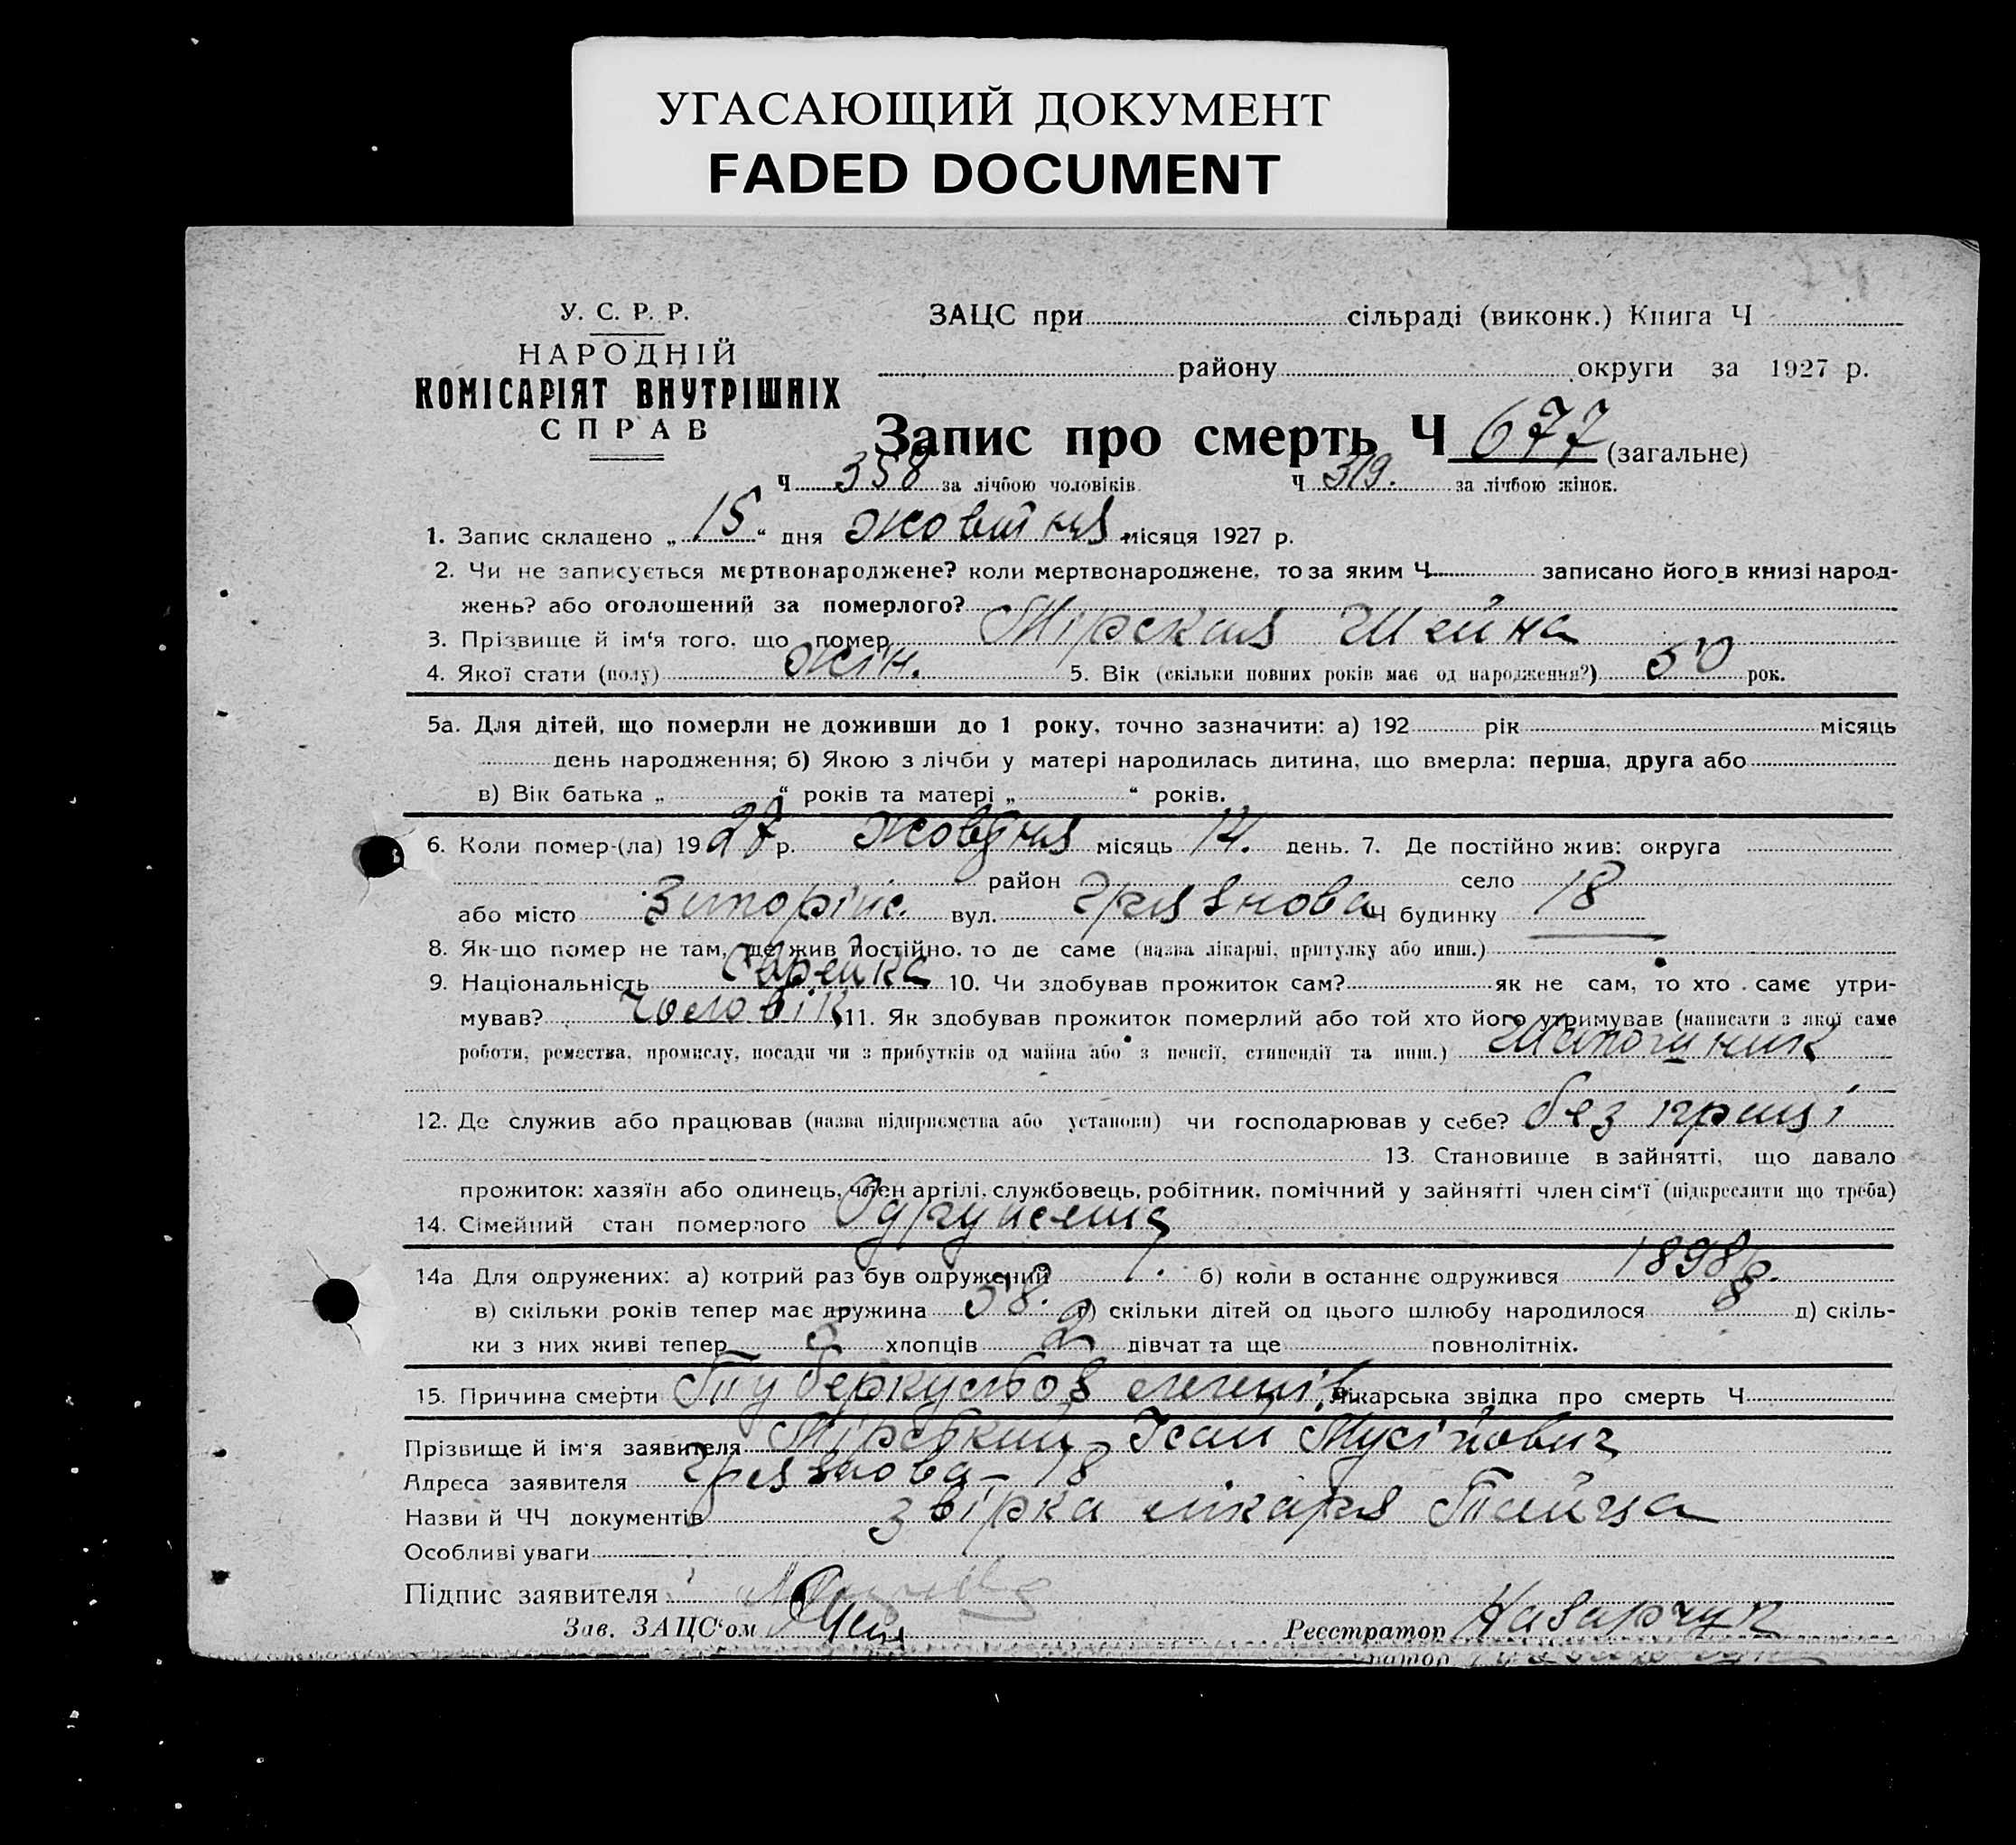 УГАСАЮЩИЙ ДОКУМЕНТ
FADED DOCUMENT
У. С. Р. Р.
НАРОДНІЙ
КОМІСАРІЯТ ВНУТРІШНІХ
СПРАВ
ЗАЦС при сільраді (виконк.) Книга Ч
району округи за 1927 р.
Запис про смерть Ч 677 (загальне)
Ч 358 за лічбою чоловіків Ч 319. за лічбою жінок.
1. Запис складено „ 15 “ дня жовтня місяця 1927 р.
2. Чи не записується мертвонароджене? коли мертвонароджене, то за яким Ч записано його в книзі народ-
жень? або оголошений за померлого?
3. Прізвище й ім‘я того, що помер Мірская Шейна
4. Якої стати (полу) жін. 5. Вік (скільки повних років має од народження?) 50 рок.
5а. Для дітей, що померли не доживши до 1 року, точно зазначити: а) 192 рік місяць
день народження; б) Якою з лічби у матері народилась дитина, що вмерла: перша, друга або
в) Вік батька „ “ років та матері „ “ років.
6. Коли помер-(ла) 1927 р. жовтня місяць 14. день. 7. Де постійно жив: округа
район село
або місто вул. Грязнова Ч будинку 18
8. Як-що помер не там, де жив постійно, то де саме (назва лікарні, притулку або инш.)
9. Національність єврейка 10. Чи здобував прожиток сам? як не сам, то хто саме утри-
мував? чоловік 11. Як здобував прожиток померлий або той хто його утримував (написати з якої саме
роботи, ремества, промислу, посади чи з прибутків од майна або з пенсії, стипендії та инш.) Шапошник
12. Де служив або працював (назва підприємства або установи) чи господарював у себе? без праці
13. Становище в зайнятті, що давало
прожиток: хазяїн або одинець, член артілі, службовець, робітник, помічний у зайнятті член сім‘ї (підкреслити що треба)
14. Сімейний стан померлого Одружена
14а Для одружених: а) котрий раз був одружений 1. б) коли в останнє одружився 1898 р.
в) скільки років тепер має дружина 58. г) скільки дітей од цього шлюбу народилося 8 д) скіль-
ки з них живі тепер хлопців 2 дівчат та ще повнолітніх.
15. Причина смерти Туберкульоз легенів Лікарська звідка про смерть Ч
Прізвище й ім‘я заявителя Мірський Ісай Мусійович
Адреса заявителя Грязнова – 18
Назви й ЧЧ документів звірка лікаря Тайца
Особливі уваги
Підпис заявителя
Зав. ЗАЦС‘ом Реєстратор Назарчук